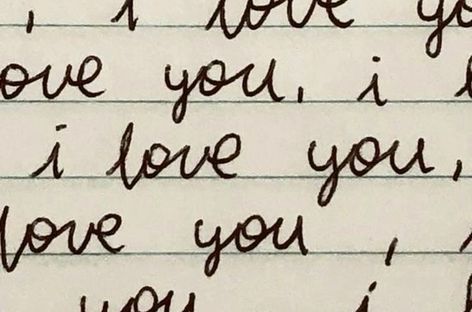 , i love yo
ove you, i l
i love you,
love you ,
you i l